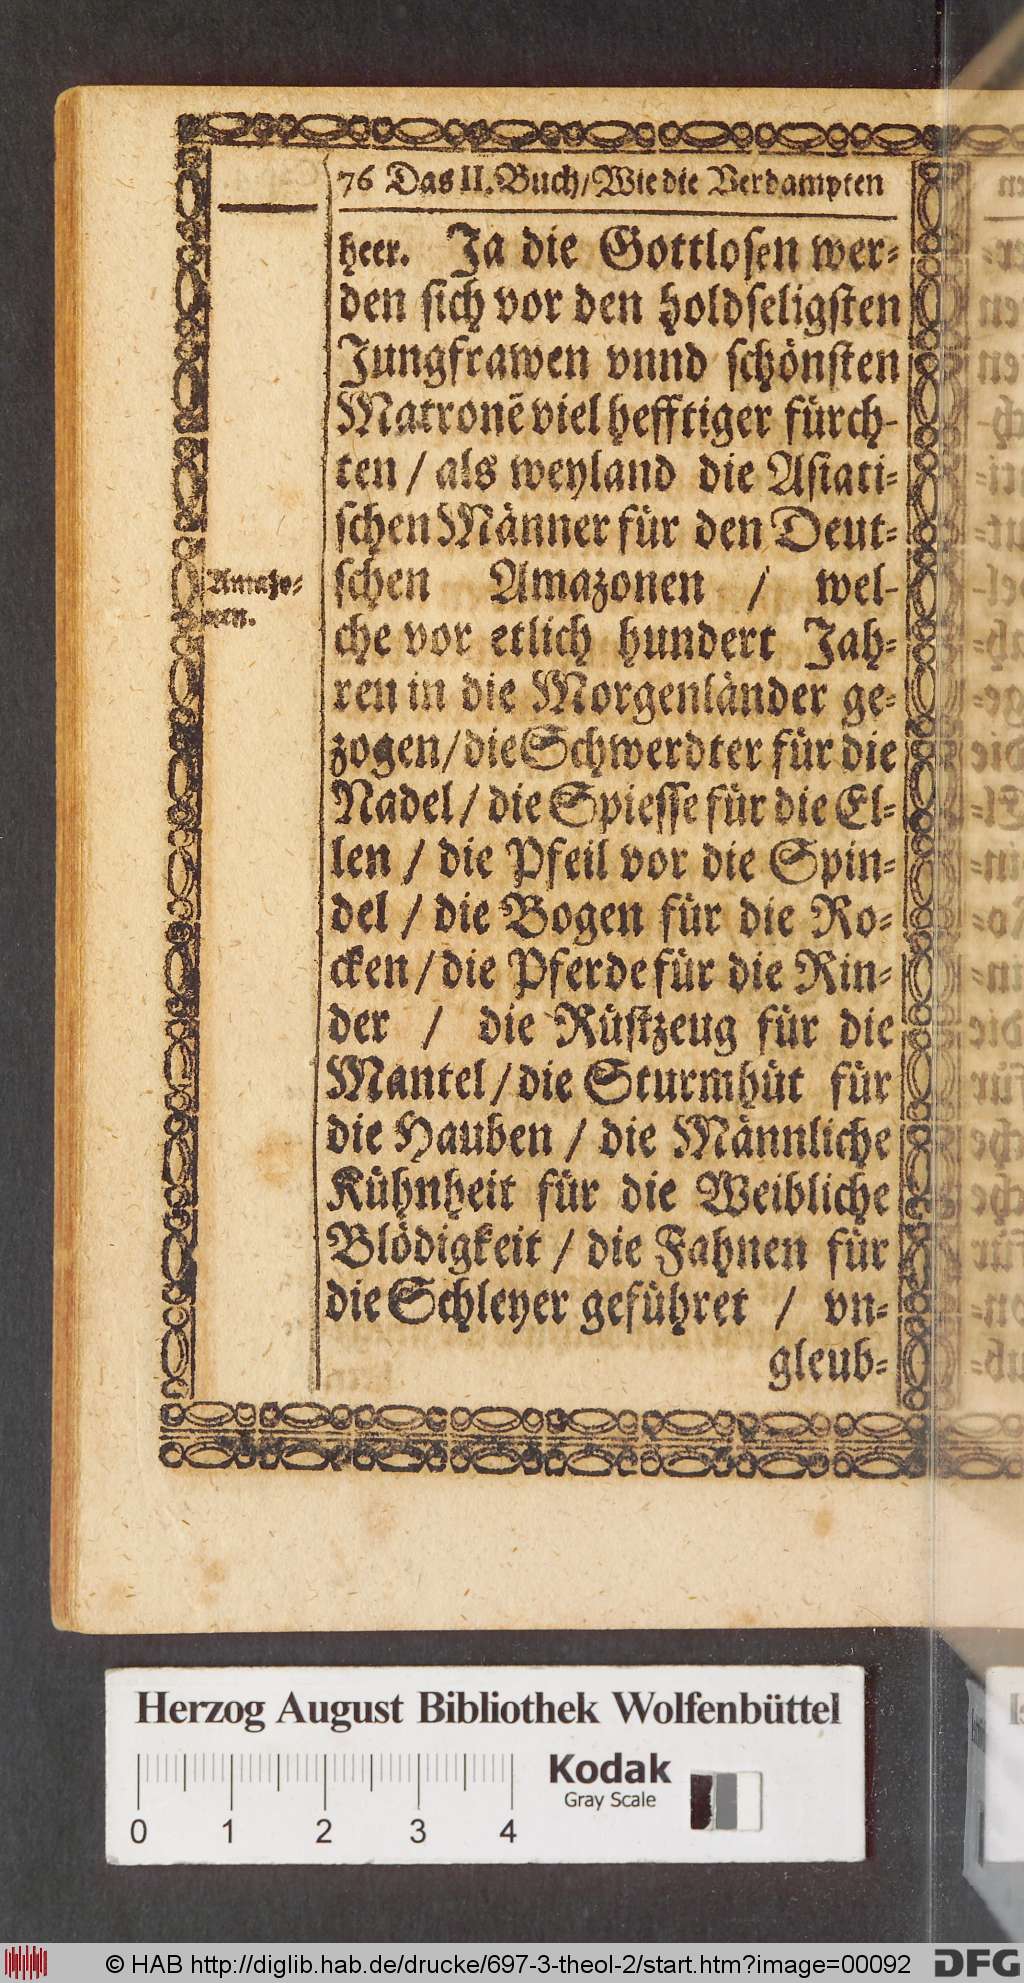 76 Das II. Buch/ Wie die Verdampten
heer. Ja die Gottlosen wer-
den sich vor den holdseligsten
Jungfrawen vnnd schönsten
Matronē viel hefftiger fürch-
ten / als weyland die Asiati-
schen Männer für den Deut-
schen Amazonen / wel-
che vor etlich hundert Jah-
ren in die Morgenländer ge-
zogen/ die Schwerdter für die
Nadel/ die Spiesse für die El-
len / die Pfeil vor die Spin-
del / die Bogen für die Ro-
cken/ die Pferde für die Rin-
der / die Rüstzeug für die
Mantel/ die Sturmhüt für
die Hauben / die Männliche
Kühnheit für die Weibliche
Blödigkeit / die Fahnen für
die Schleyer geführet / vn-
gleub-
Amazo-
nen.
Herzog August Bibliothek Wolfenbüttel
Kodak
Gray Scale
0 1 2 3 4
© HAB http://diglib.hab.de/drucke/697-3-theol-2/start.htm?image=00092
DFG